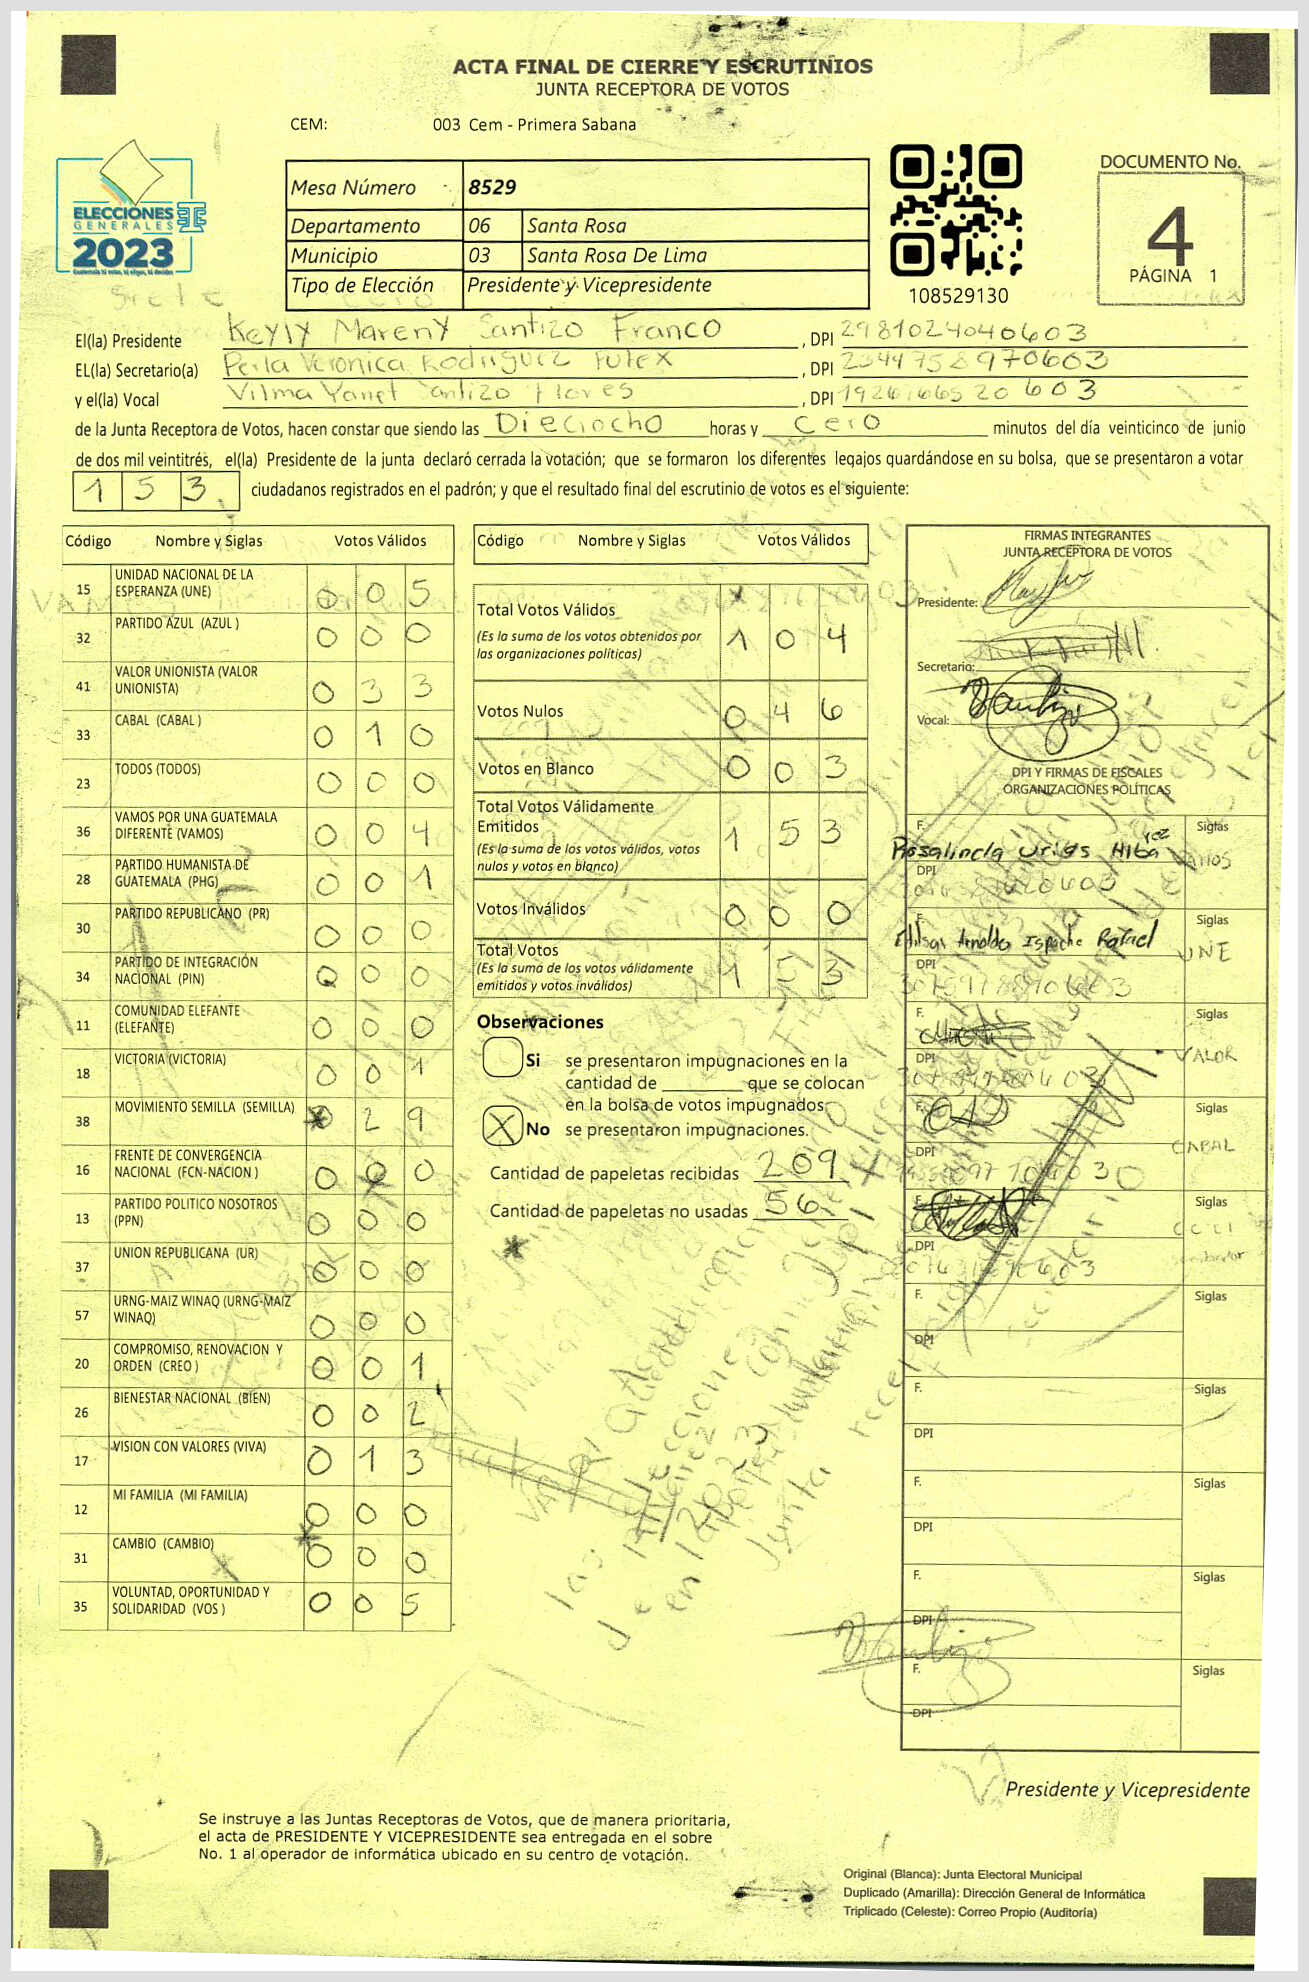 ACTA FINAL DE CIERRE Y ESCRUTINIOS
JUNTA RECEPTORA DE VOTOS
CEM: 003 Cem - Primera Sabana
ELECCIONES
GENERALES
2023
Mesa Número 8529
Departamento 06 Santa Rosa
Municipio 03 Santa Rosa De Lima
Tipo de Elección Presidente y Vicepresidente
108529130
DOCUMENTO No.
4
PÁGINA 1
El(la) Presidente Keyly Mareny Santizo Franco, DPI 2981024040603
EL(la) Secretario(a) Perla Veronica Rodriguez Futex, DPI 2344758970603
y el(la) Vocal Vilma Yanet Santizo Flores, DPI 1926166520603
de la Junta Receptora de Votos, hacen constar que siendo las Dieciocho horas y Cero minutos del día veinticinco de junio
de dos mil veintitrés, el(la) Presidente de la junta declaró cerrada la votación; que se formaron los diferentes legajos guardándose en su bolsa, que se presentaron a votar
153 ciudadanos registrados en el padrón; y que el resultado final del escrutinio de votos es el siguiente:
Código Nombre y Siglas Votos Válidos
15 UNIDAD NACIONAL DE LA ESPERANZA (UNE) 0 0 5
32 PARTIDO AZUL (AZUL ) 0 0 0
41 VALOR UNIONISTA (VALOR UNIONISTA) 0 3 3
33 CABAL (CABAL ) 0 1 0
23 TODOS (TODOS) 0 0 0
36 VAMOS POR UNA GUATEMALA DIFERENTE (VAMOS) 0 0 4
28 PARTIDO HUMANISTA DE GUATEMALA (PHG) 0 0 1
30 PARTIDO REPUBLICANO (PR) 0 0 0
34 PARTIDO DE INTEGRACIÓN NACIONAL (PIN) 0 0 0
11 COMUNIDAD ELEFANTE (ELEFANTE) 0 0 0
18 VICTORIA (VICTORIA) 0 0 1
38 MOVIMIENTO SEMILLA (SEMILLA) 0 2 9
16 FRENTE DE CONVERGENCIA NACIONAL (FCN-NACION ) 0 0 0
13 PARTIDO POLITICO NOSOTROS (PPN) 0 0 0
37 UNION REPUBLICANA (UR) 0 0 0
57 URNG-MAIZ WINAQ (URNG-MAIZ WINAQ) 0 0 0
20 COMPROMISO, RENOVACION Y ORDEN (CREO ) 0 0 1
26 BIENESTAR NACIONAL (BIEN) 0 0 2
17 VISION CON VALORES (VIVA) 0 1 3
12 MI FAMILIA (MI FAMILIA) 0 0 0
31 CAMBIO (CAMBIO) 0 0 0
35 VOLUNTAD, OPORTUNIDAD Y SOLIDARIDAD (VOS ) 0 0 5
Código Nombre y Siglas Votos Válidos
Total Votos Válidos 1 0 4
(Es la suma de los votos obtenidos por
las organizaciones políticas)
Votos Nulos 0 4 6
Votos en Blanco 0 0 3
Total Votos Válidamente
Emitidos 1 5 3
(Es la suma de los votos válidos, votos
nulos y votos en blanco)
Votos Inválidos 0 0 0
Total Votos 1 5 3
(Es la suma de los votos válidamente
emitidos y votos inválidos)
Observaciones
Si se presentaron impugnaciones en la
cantidad de ________ que se colocan
en la bolsa de votos impugnados
X No se presentaron impugnaciones.
Cantidad de papeletas recibidas 209
Cantidad de papeletas no usadas 56
FIRMAS INTEGRANTES
JUNTA RECEPTORA DE VOTOS
Presidente:
Secretario:
Vocal:
DPI Y FIRMAS DE FISCALES
ORGANIZACIONES POLÍTICAS
F. Rosalinda Siglas
DPI
F. Arnoldo Rafael Siglas UNE
DPI
F. Siglas VALOR
DPI
F. Siglas CABAL
DPI
F. Siglas
DPI
F. Siglas
DPI
F. Siglas
DPI
F. Siglas
DPI
F. Siglas
DPI
F. Siglas
DPI
Presidente y Vicepresidente
Se instruye a las Juntas Receptoras de Votos, que de manera prioritaria,
el acta de PRESIDENTE Y VICEPRESIDENTE sea entregada en el sobre
No. 1 al operador de informática ubicado en su centro de votación.
Original (Blanca): Junta Electoral Municipal
Duplicado (Amarilla): Dirección General de Informática
Triplicado (Celeste): Correo Propio (Auditoría)